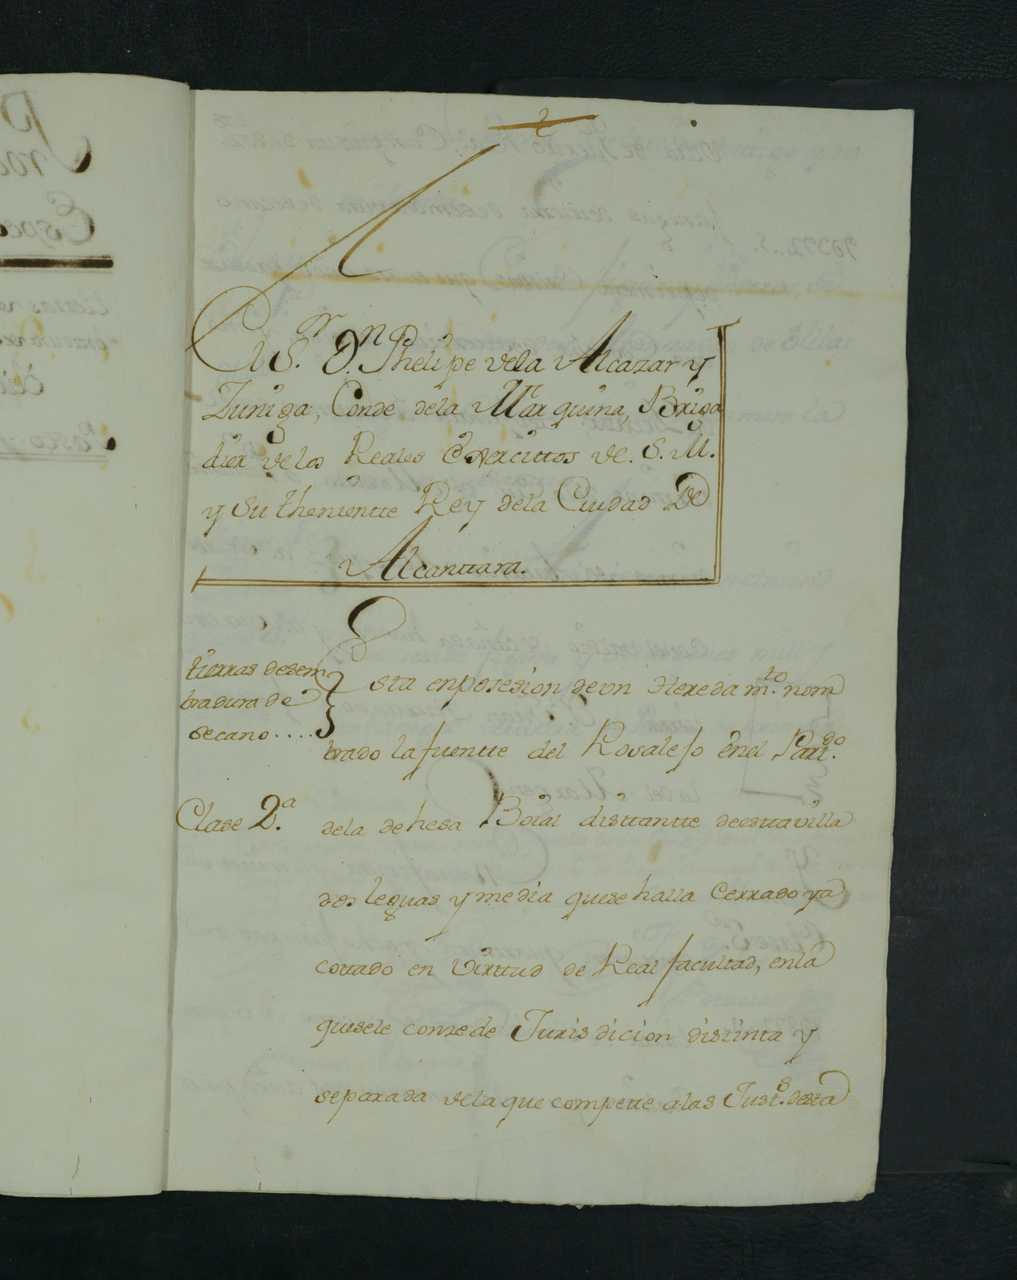 2
El S.r D.n Phelipe vela Alcazar y
Zuniga, Conde dela Marquina, Briga
dier velos Reales Exercittos de. S. M.
y su thenientte Rey dela Ciudad De
Alcanttara.
tierras desem
bradura de
secano....
Esta enposesion deun Heredam.to nom
brado lafuentte del Rosalejo enel Part.do
Clase 2.a
dela dehesa Boial disttantte deesttavilla
dos leguas y media quese halla Cerrado ya
cottado en virttud de Real facultad, enla
quesele conzede Jurisdicion distinta y
separada vela que compette alas Just.s desta